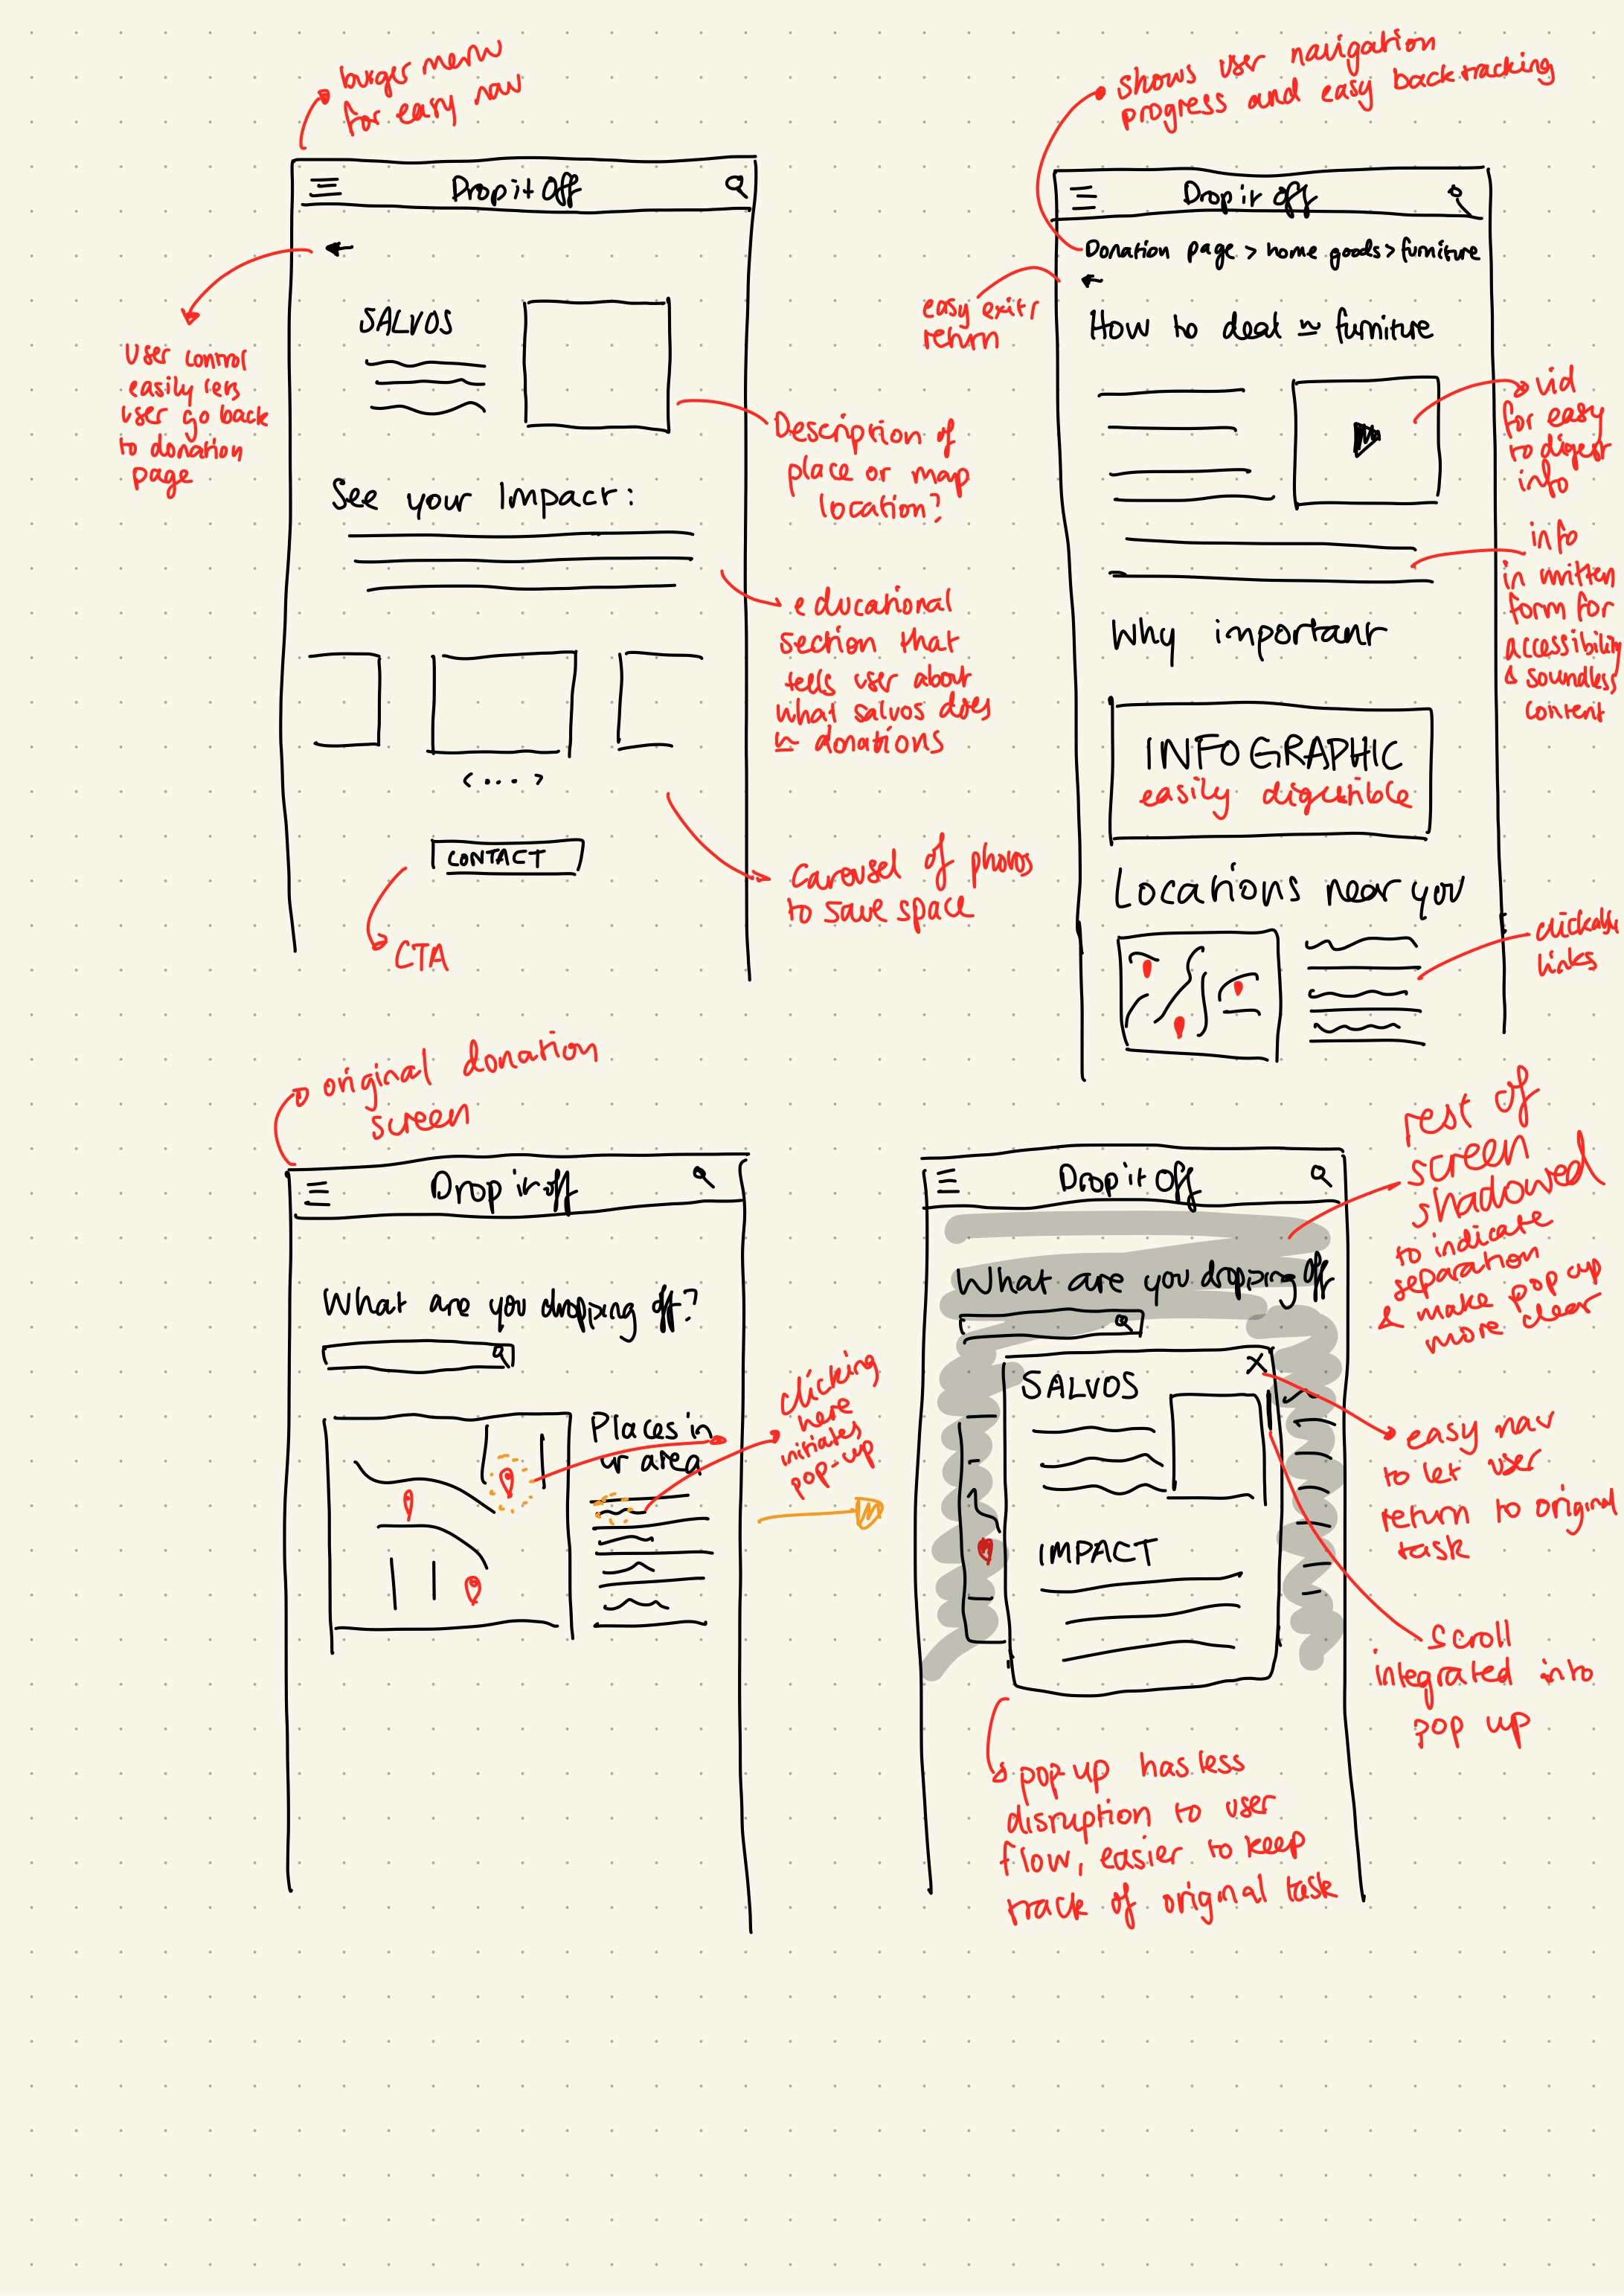 burger menu
for easy nav
Drop it Off
User control
easily lets
user go back
to donation
page
SALVOS
Description of
place or map
location?
See your Impact:
educational
section that
tells user about
what salvos does
w donations
<....>
Carousel of photos
to save space
CONTACT
CTA
shows user navigation
progress and easy backtracking
Drop it off
Donation page > home goods > furniture
easy exit
return
How to deal w furniture
vid
for easy
to digest
info
info
in written
form for
accessibility
& soundless
content
Why important
INFOGRAPHIC
easily digestible
Locations near you
clickable
links
original donation
screen
Drop it off
What are you dropping off?
Places in
ur area
clicking
here
initiates
pop-up
Drop it Off
rest of
screen
shadowed
to indicate
separation
& make pop up
more clear
What are you dropping off
SALVOS
X
IMPACT
easy nav
to let user
return to original
task
Scroll
integrated into
pop up
pop up has less
disruption to user
flow, easier to keep
track of original task